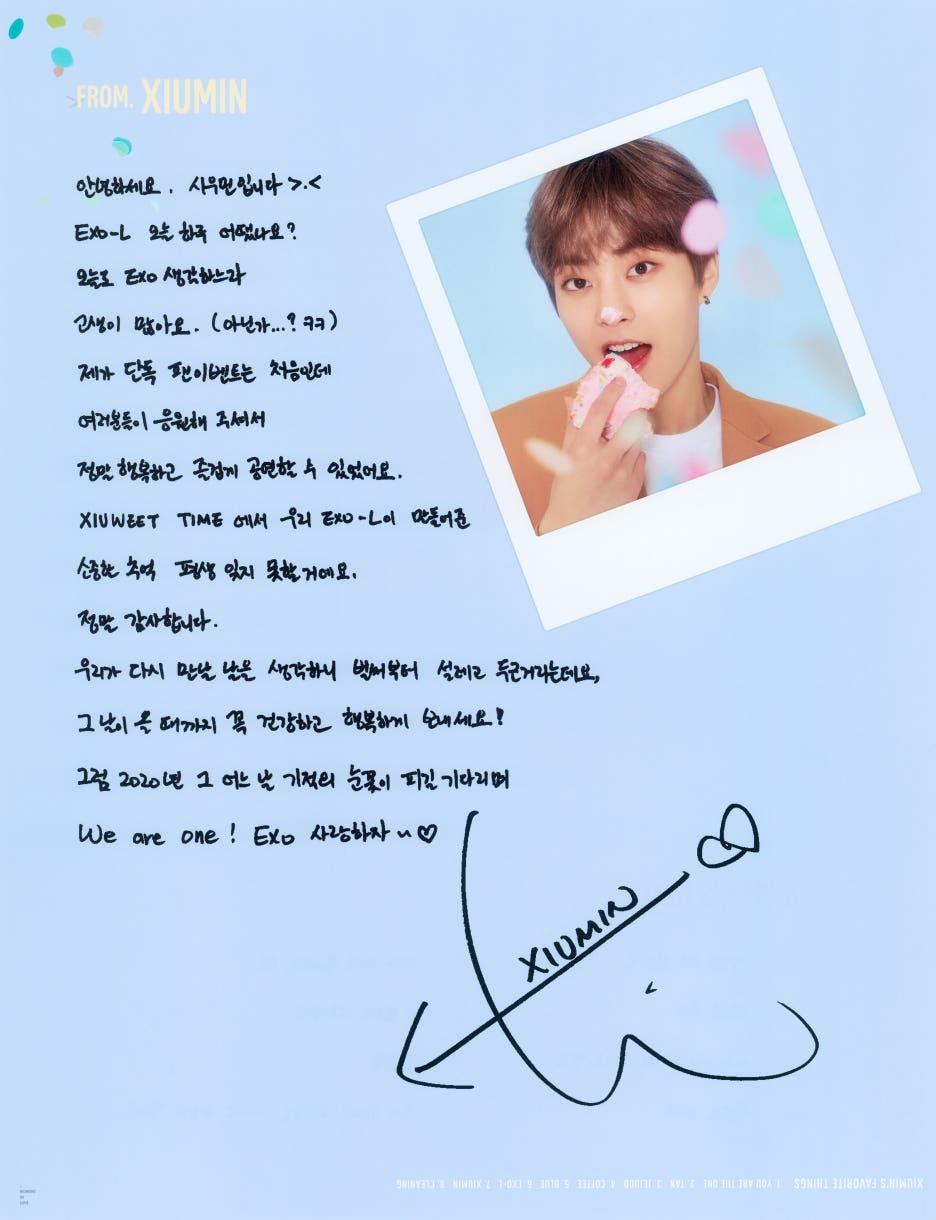 >FROM. XIUMIN
안녕하세요. 시우민입니다 >.<
EXO-L 오늘 하루 어땠나요?
오늘도 EXO 생각하느라
고생이 많아요. (아닌가...? ㅋㅋ)
제가 단독 팬이벤트는 처음인데
여러분들이 응원해 주셔서
정말 행복하고 즐겁게 공연할 수 있었어요.
XIUWEET TIME 에서 우리 EXO-L이 만들어준
소중한 추억 평생 잊지 못할거예요.
정말 감사합니다.
우리가 다시 만날 날을 생각하니 벌써부터 설레고 두근거리는데요,
그 날이 올 때까지 꼭 건강하고 행복하게 보내세요!
그럼 2020년 그 어느 날 기적의 눈꽃이 피길 기다리며
We are one! EXO 사랑하자 ~ ♡
XIUMIN
XIUMIN'S FAVORITE THINGS 1. YOU ARE THE ONE 2. TAN 3. JEJUDO 4. COFFEE 5. BLUE 6. EXO-L 7. XIUMIN 8. CLEANING